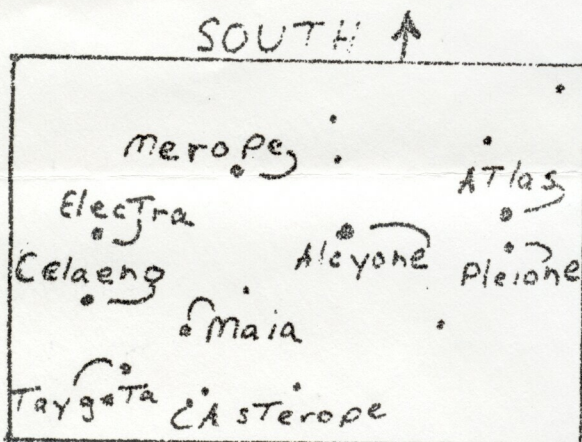 SOUTH ↑
Merope
ATlas
ElecTra
Alcyone
Pleione
Celaeno
Maia
TaygeTa
CAsTerope